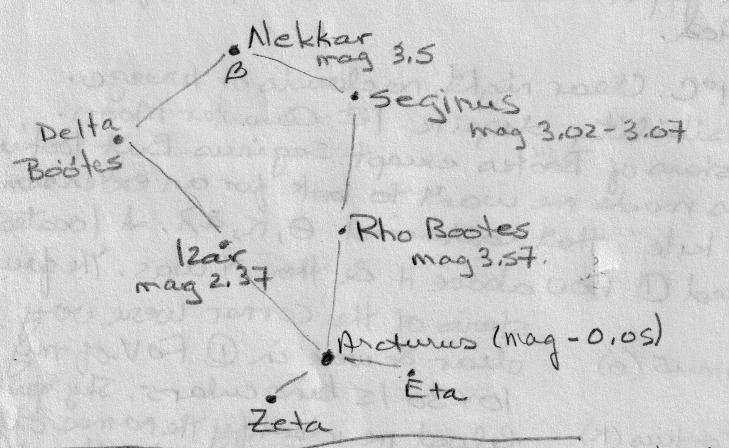 Nekkar
mag 3.5
β
Seginus
mag 3.02-3.07
Delta
Boötes
Izar
mag 2.37
Rho Bootes
mag 3.57.
Arcturus (mag -0.05)
Eta
Zeta